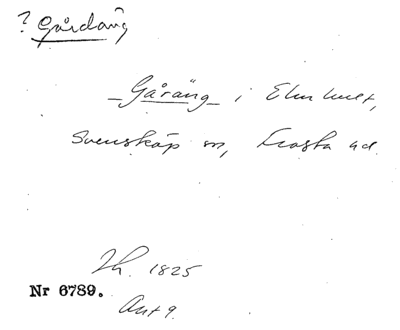 ? Gårdäng
– Gåräng – i Elmhult,
Svensköp sn, Frosta hd.
Zh. 1825
Nr 6789.
Ant 9.